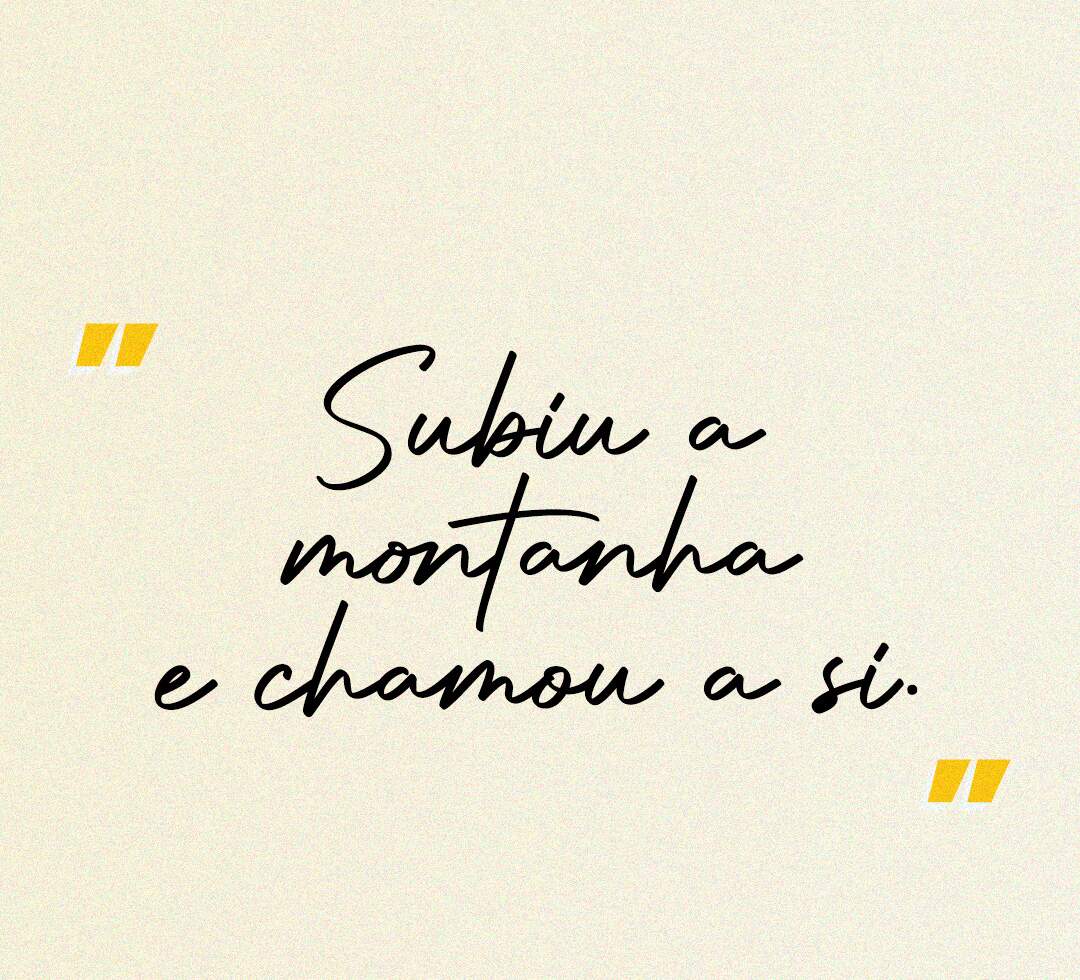 "Subiu a
montanha
e chamou a si."